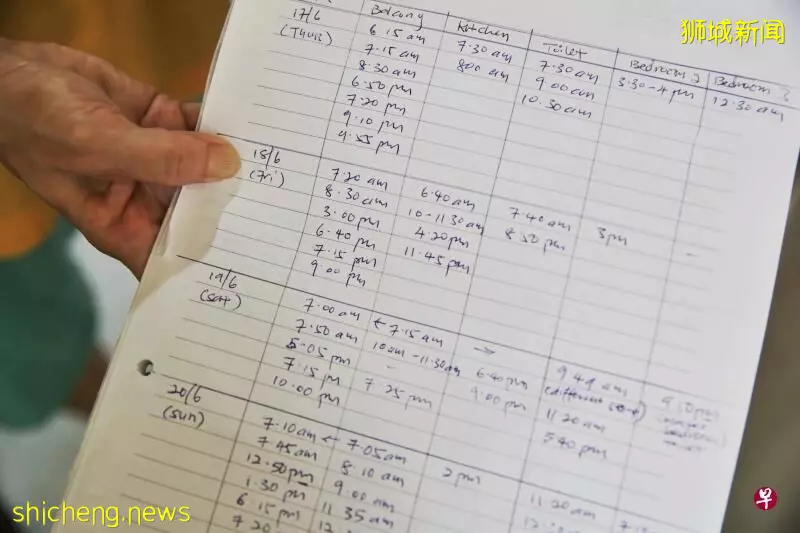 狮城新闻
17/6 Balcony Kitchen Toilet Bedroom 2 Bedroom 3
(Thurs) 6.15 am 7.30 am 7.30 am 3.30-4 pm 12.30 am
7.15 am 8.00 am 9.00 am
8.30 am 10.30 am
6.50 pm
7.20 pm
9.10 pm
9.55 pm
18/6 7.20 am 6.40 am 7.40 am 3 pm -
(Fri) 8.30 am 10-11.30 am 8.50 pm
3.00 pm 4.20 pm
6.40 pm 11.45 pm
7.15 pm
9.00 pm
19/6 7.00 am ← 7.15 am → 9.49 am 9.50 pm
(Sat) 7.50 am 10 am -11.30 am 6.40 pm
5.05 pm - 9.00 pm 11.20 am
7.15 pm 7.25 pm 5.40 pm
10.00 pm
20/6 7.10 am ← 7.05 am 2 pm 11.20 am
(Sun) 7.45 am 8.10 am
12.50 pm 9.00 am
1.30 pm 11.35 am
6.15 pm
7.20
早
shicheng.news